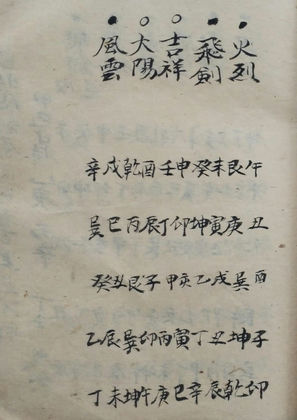 火烈
飛劍
吉祥
大陽
風雲
午艮未癸申壬酉乾戌辛
丑庚寅坤卯丁辰丙巳巽
酉巽戌乙亥甲子艮丑癸
子坤丑丁寅丙卯巽辰乙
卯乾辰辛巳庚午坤未丁